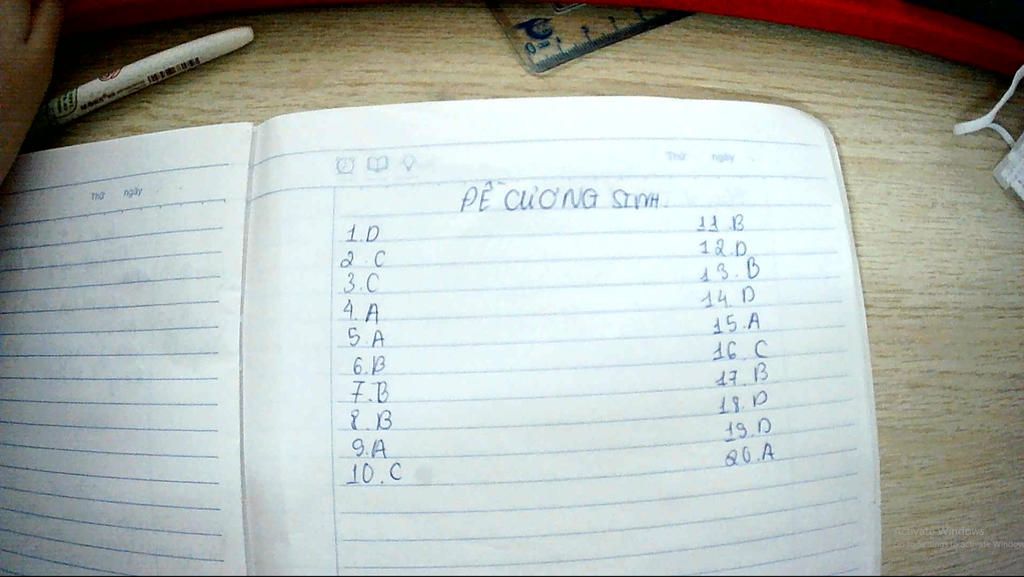 Thứ ngày
Thứ ngày
ĐỀ CƯƠNG SINH.
1.D
2.C
3.C
4.A
5.A
6.B
7.B
8.B
9.A
10.C
11.B
12.D
13.B
14.D
15.A
16.C
17.B
18.D
19.D
20.A
0 1
Activate Windows